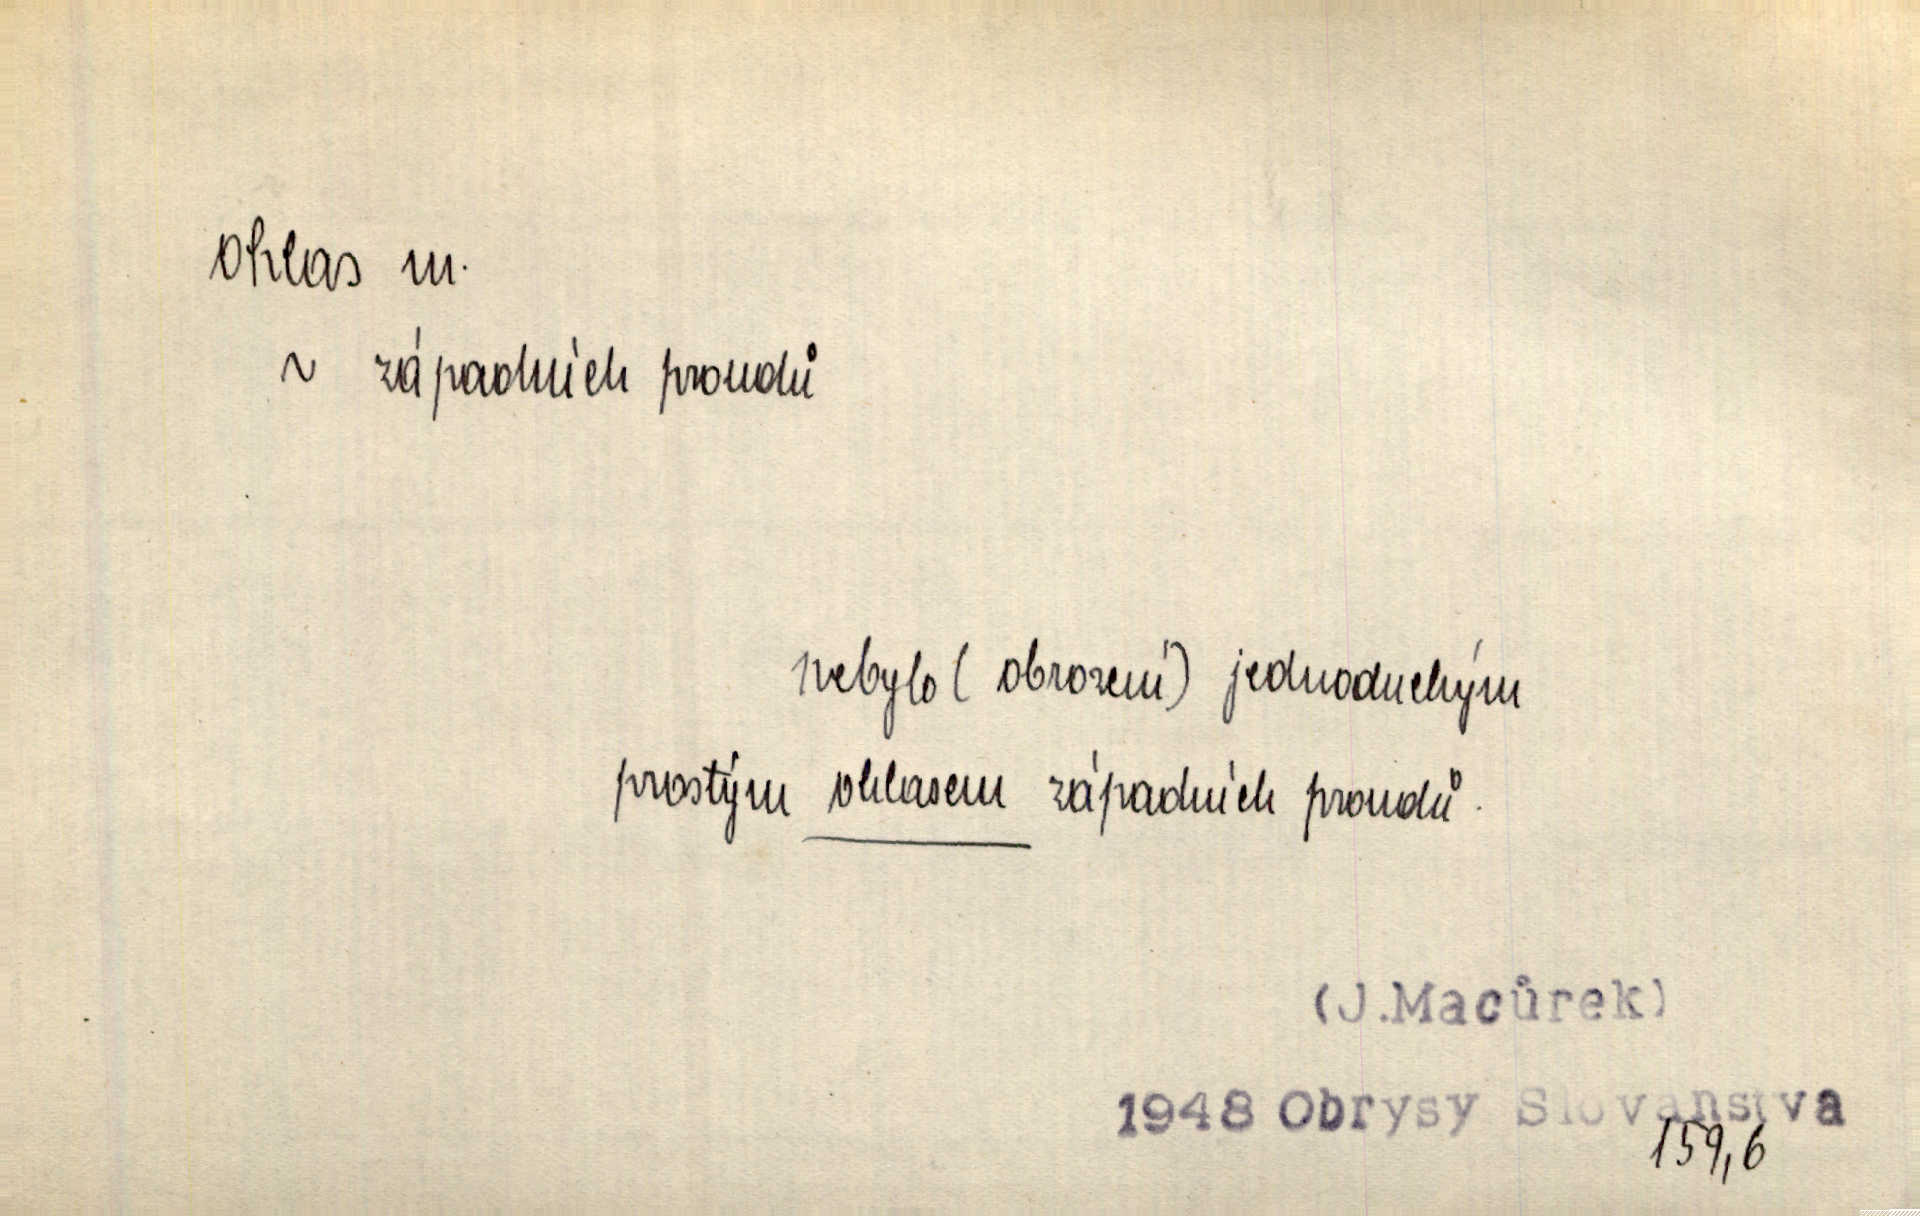 ohlas m.
~ západních proudů
nebylo (obrození) jednoduchým
prostým ohlasem západních proudů.
(J.Macůrek)
1948 Obrysy Slovanstva
159,6